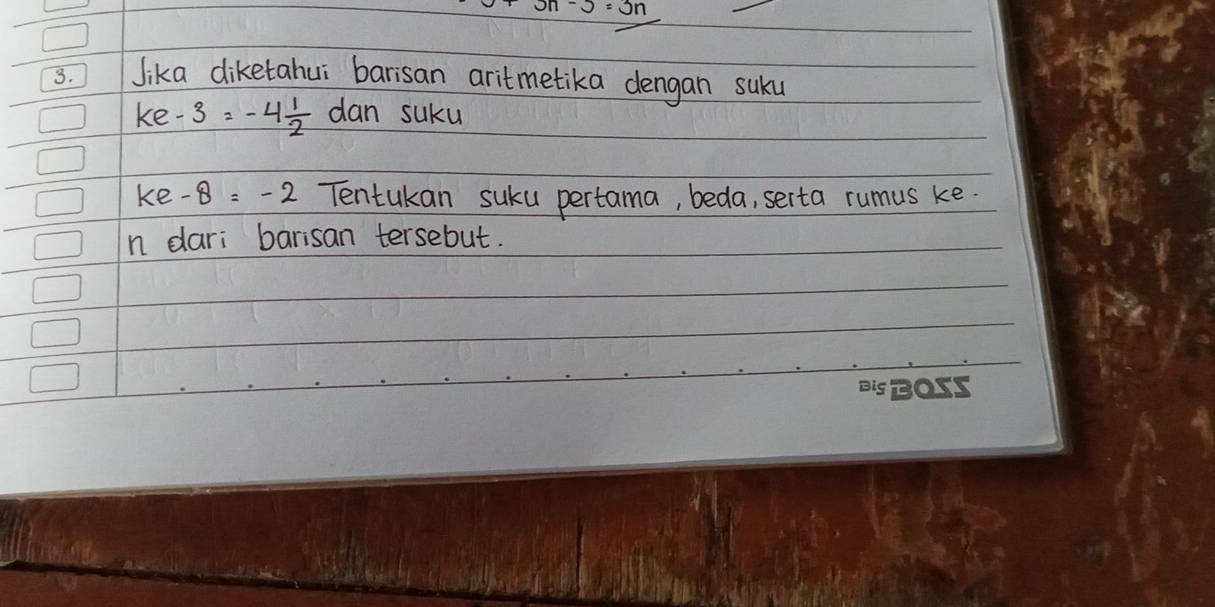 3n - 3 = 3n
3. Jika diketahui barisan aritmetika dengan suku
ke-3 = -4 1/2 dan suku
ke-8 = -2 Tentukan suku pertama, beda, serta rumus ke-
n dari barisan tersebut.
Big BOSS